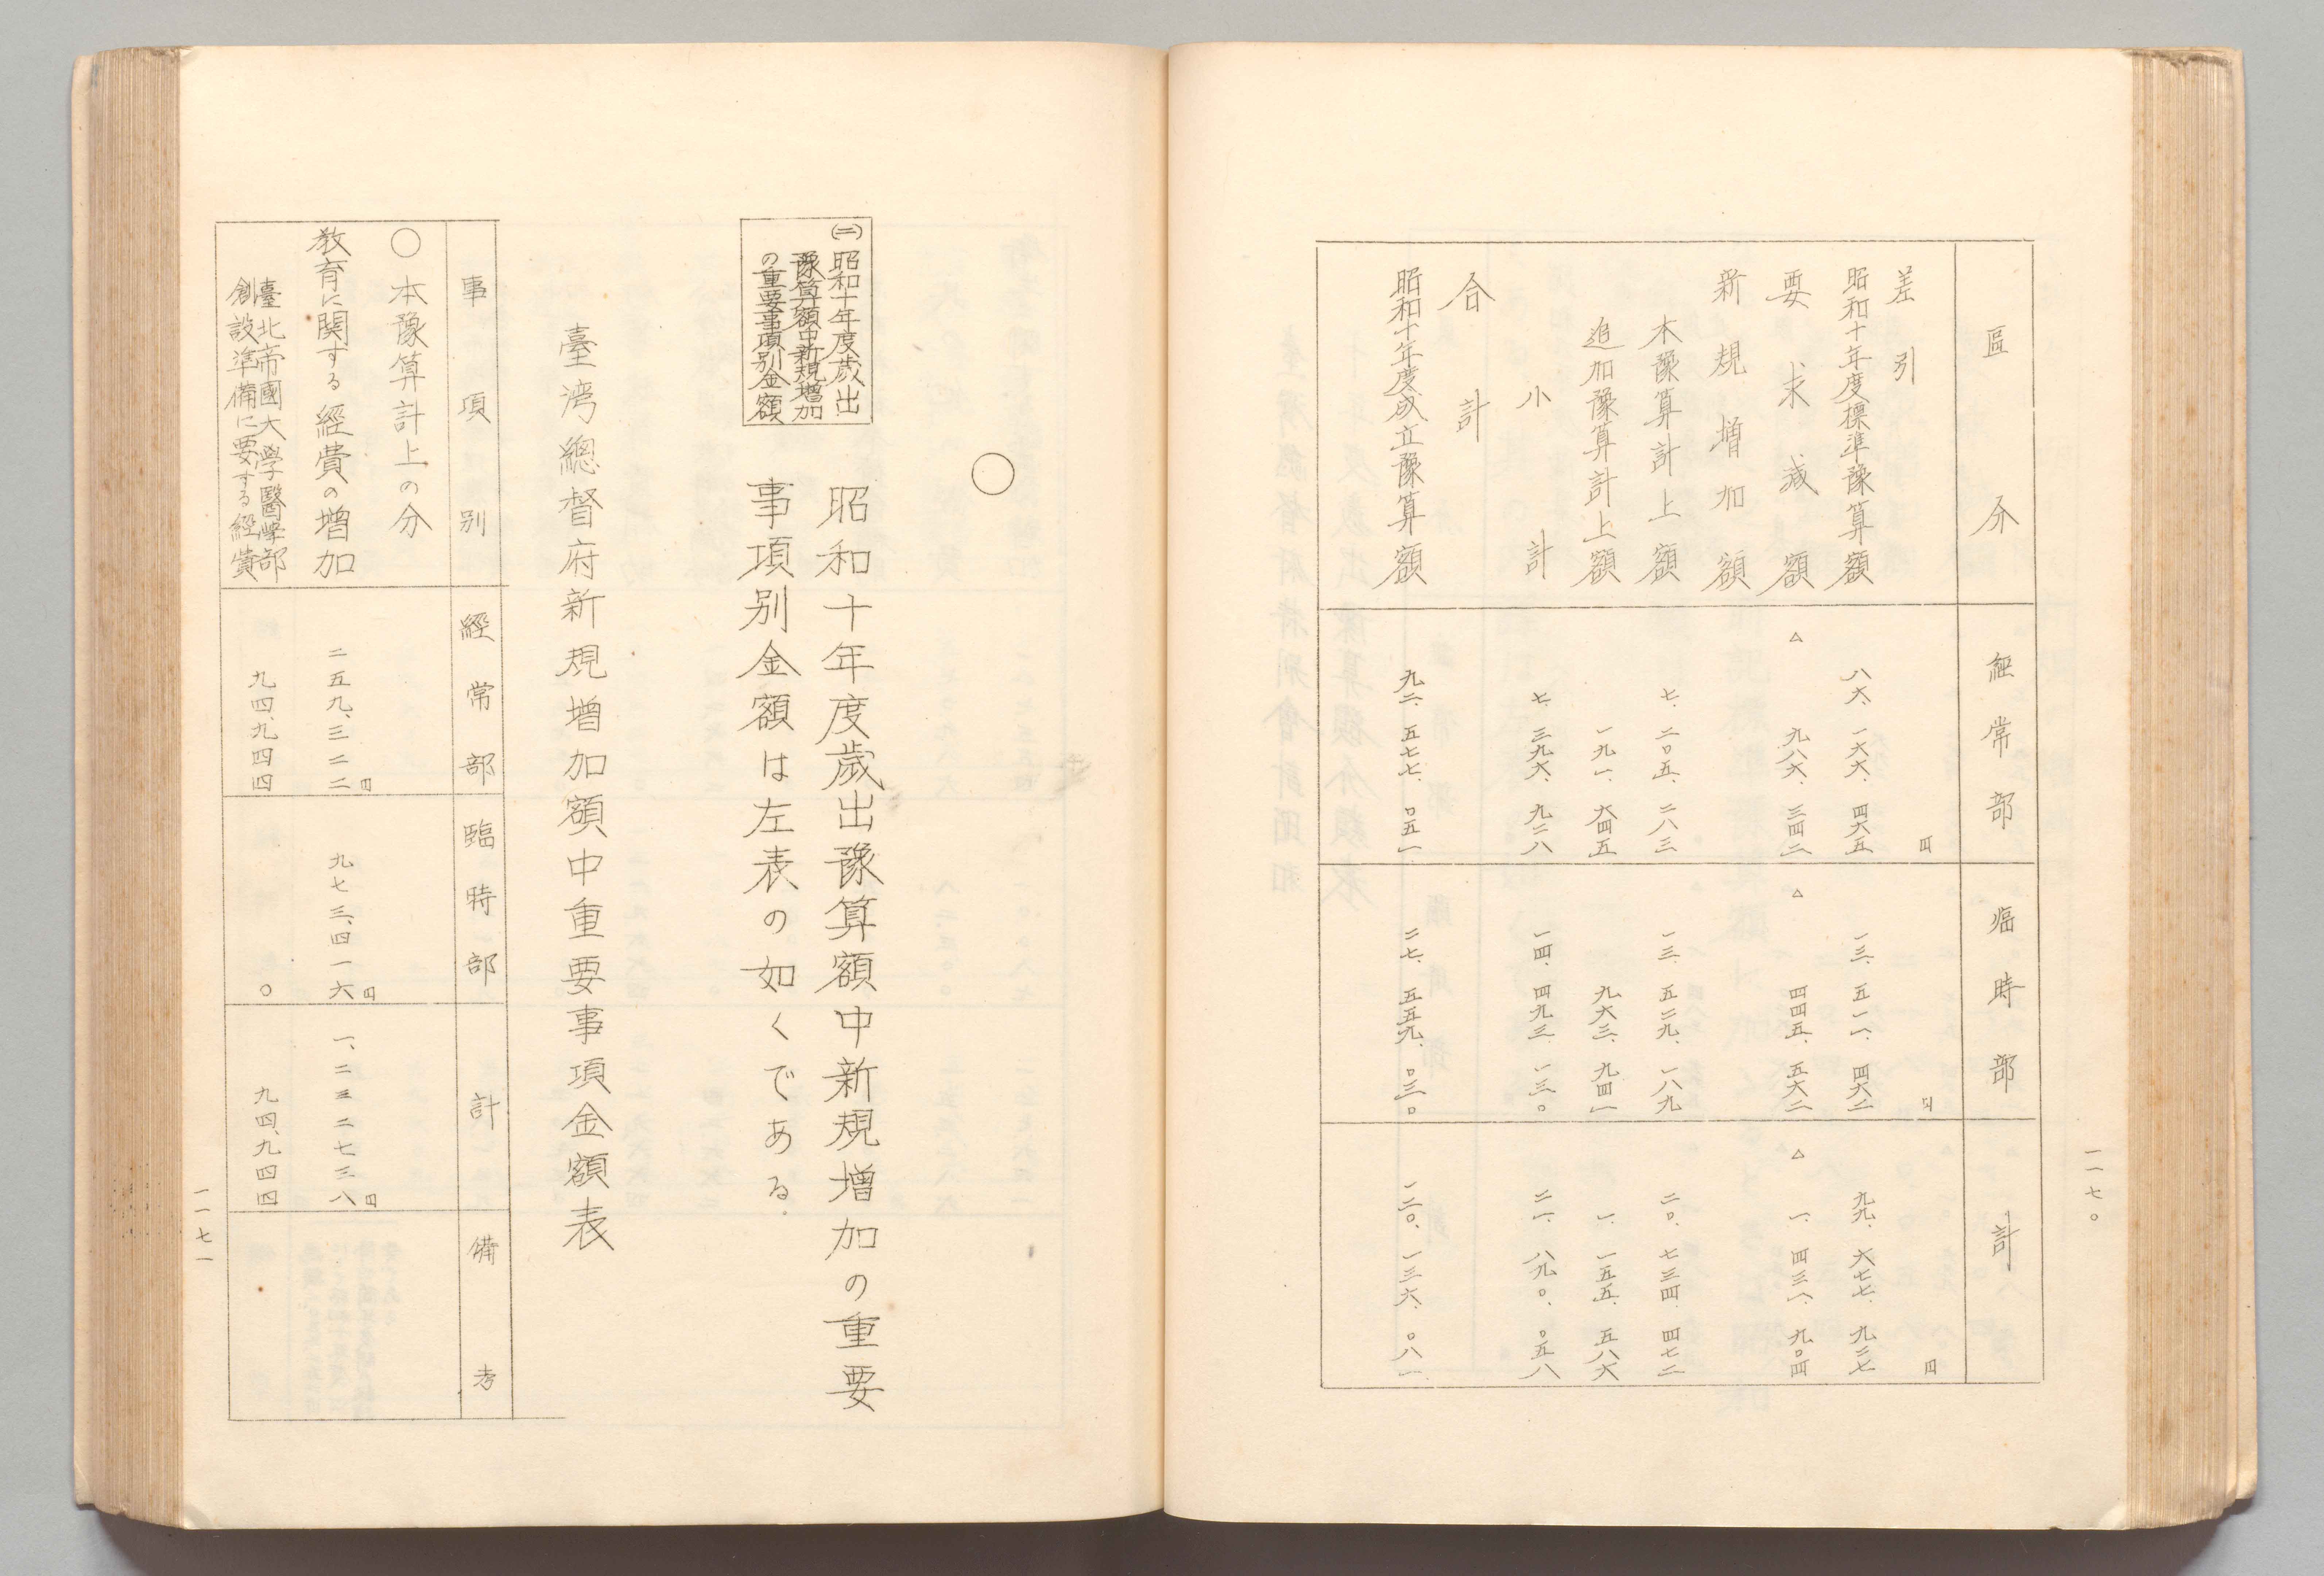 一一七〇
區分 經常部 臨時部 計
差引 円 円 円
昭和十年度標準豫算額 八六、一六六、四六五 一三、五一一、四六二 九九、六七七、九二七
要求減額 △ 九八六、三四二 △ 四四五、五六二 △ 一、四三一、九〇四
新規増加額
本豫算計上額 七、二〇五、二八三 一三、五二九、一八九 二〇、七三四、四七二
追加豫算計上額 一九一、六四五 九六三、九四一 一、一五五、五八六
小計 七、三九六、九二八 一四、四九三、一三〇 二一、八九〇、〇五八
合計
昭和十年度成立豫算額 九二、五七七、〇五一 二七、五五九、〇三〇 一二〇、一三六、〇八一
○
(二)昭和十年度歳出
豫算額中新規増加
の重要事項別金額
昭和十年度歳出豫算額中新規増加の重要
事項別金額は左表の如くである。
臺湾總督府新規増加額中重要事項金額表
事項別 經常部 臨時部 計 備考
○本豫算計上の分 円 円 円
教育に関する經費の増加 二五九、三二二 九七三、四一六 一、二三二七三八
臺北帝國大学醫学部
創設準備に要する經費 九四、九四四 〇 九四、九四四
一一七一